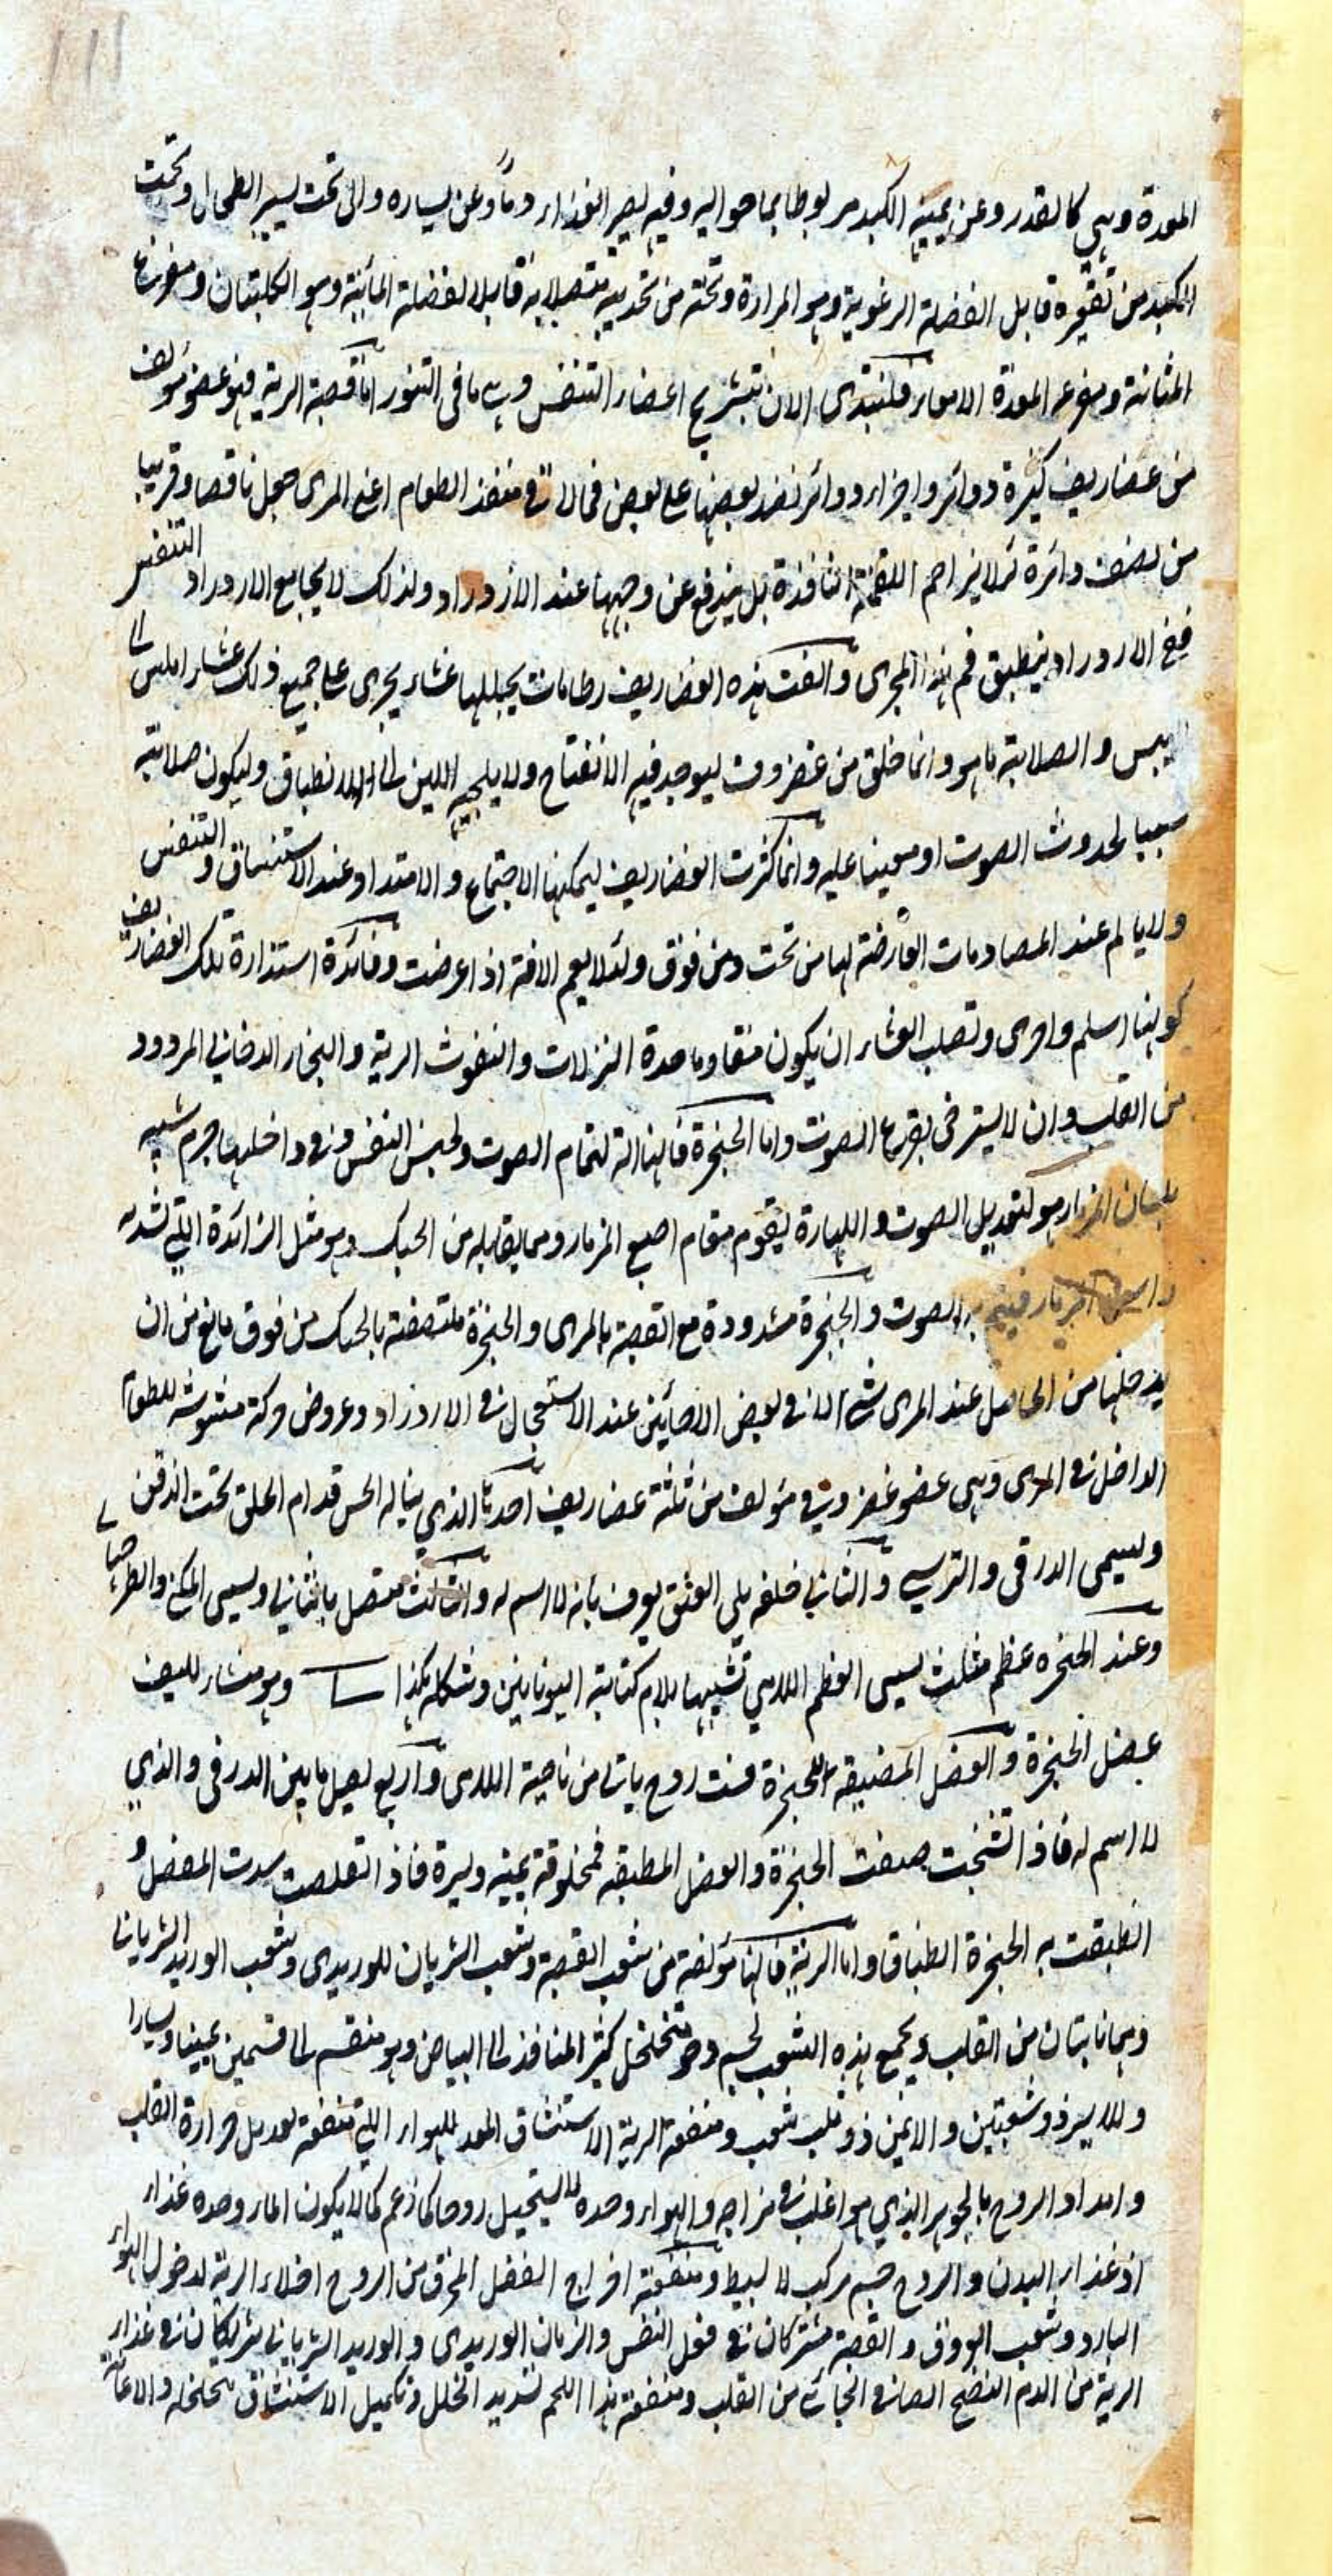 المعدة وهي كالقدر وعن يمينه الكبد مربوطا بما حواليه وفيه يصير الغذاء دماً وعن يساره والى تحت يسير الطحال وتحت
الكبد من تقعيره قابل الفضلة الرغوية وهو المرارة وتحته من تحدبيه متصلا به قابلا لفضلة المائية وهو الكليتان ومفرغ
المثانة ومفرغ المعدة الامعاء فلنبتدى الان بتشريح اعضاء التنفس وهي ما في التنور اما قصبة الرية فهو عضو مؤلف
من غضاريف كثيرة دوائر واجزاء دوائر نضد بعضها على بعض فما لاقى منفذ الطعام اعنى المرى جعل ناقصا وقريبا
من نصف دائرة لئلا يزاحم اللقمة النافذة بل يندفع عن وجهها عند الازدراد ولذلك لا يجامع الازدراد التنفس
فيخ الازدراد ينطبق فم هذا المجرى والفت هذه الغضاريف رطاباتت يجللها غشاء يجرى على جميع ذلك غشاء املس الى
اليبس والصلابة ما هو وانما خلق من غضروف ليوجد فيه الانفتاح ولا يلجيه اللين الى الانطباق وليكون صلابته
سببا لحدوث الصوت او معينا عليه وانما كثرت الغضاريف ليمكنها الاجتماع والامتداد عند الاستنشاق والتنفس
ولا يالم عند المصادمات العارضة لها من تحت ومن فوق ولئلا يعم الافة اذا عرضت وفائدة استدارة تلك الغضاريف
كونها اسلم واحرى وتصلب الغشاء ان يكون مقاوما حدة النزلات والنفوث الرية والبخار الدخاني المردود
من القلب وان لا يسترخى بقرع الصوت واما الحنجرة فانها الة لتمام الصوت ولحبس النفس وفي داخلها جرم شبيه
بلسان المزمار هو لتعديل الصوت واللهاة يقوم مقام اصبع المزمار وما يقابله من الحنك وهو مثل الزائدة التي تشد به
راس المزمار فيتم به الصوت والحنجرة مشدودة مع القصبة بالمرى والحنجرة ملتصقة بالحنك من فوق مانع من ان
يدخلها من الحاصل عند المرى شئ الا في بعض الاحائين عند الاستعجال في الازدراد وعروض حركة مشوشة للطعام
الداخل في المرى وهي عضو غضروفي مؤلف من ثلثة غضاريف احدها الذي يناله الحس قدام الحلق تحت الذقن
ويسمى الدرقى والترسي والثاني خلفه يلى العنق يعرف بانه لا اسم له والثالث متصل بالثاني ويسمى المكبى والطرجهالي
وعند الحنجره عظم مثلث يسمى العظم اللامى تشبيها بلام كتابة اليونانين وشكله هكذا وهو منشاء لليف
عضل الحنجرة والعضل المضيقة للحنجرة فمنه زوج ياتى من ناحية اللامى واربع يصل ما بين الدرقى والذي
لا اسم له فاذا تشنجت ضيقت الحنجرة والعضل المطبقه فمخلوقة يمنة ويسرة فاذا تقلصت سدت المفصل و
انطبقت به الحنجرة انطباقا واما الرئة فانها مؤلفة من شعب القصبة وشعب الشريان للوريدى وشعب الوريد الشرياني
وهما نابتان من القلب ويجمع هذه الشعب لحم رخو متخلخل كثير المنافذ الى البياض وهو منقسم الى قسمين يمينا ويسارا
والايسر ذو شعبتين والايمن ذو ثلث شعب ومنفعة الرية الاستنشاق المعد للهواء التي منفعة تعديل حرارة القلب
وامداد الروح بالجوهر الذي هو اغلب في مزاجه والهواء وحده لا يستحيل روحا كما زعم كما لا يكون الماء وحده غذاء
اذ غذاء البدن والروح جسم مركب لا بسيط ومنفعته اخراج الفضل المحرق من الروح اخلاء الرية لدخول الهواء
البارد وشعب العروق والقصبة مشتركان في فعل النفس والشريان الوريدى والوريد الشرياني يشتركان في غذاء
الرية من الدم النضيج الصافى الجائى من القلب ومنفعة هذا اللحم تسديد الخلل وتكميل الاستنشاق بتخلخله والاعانة